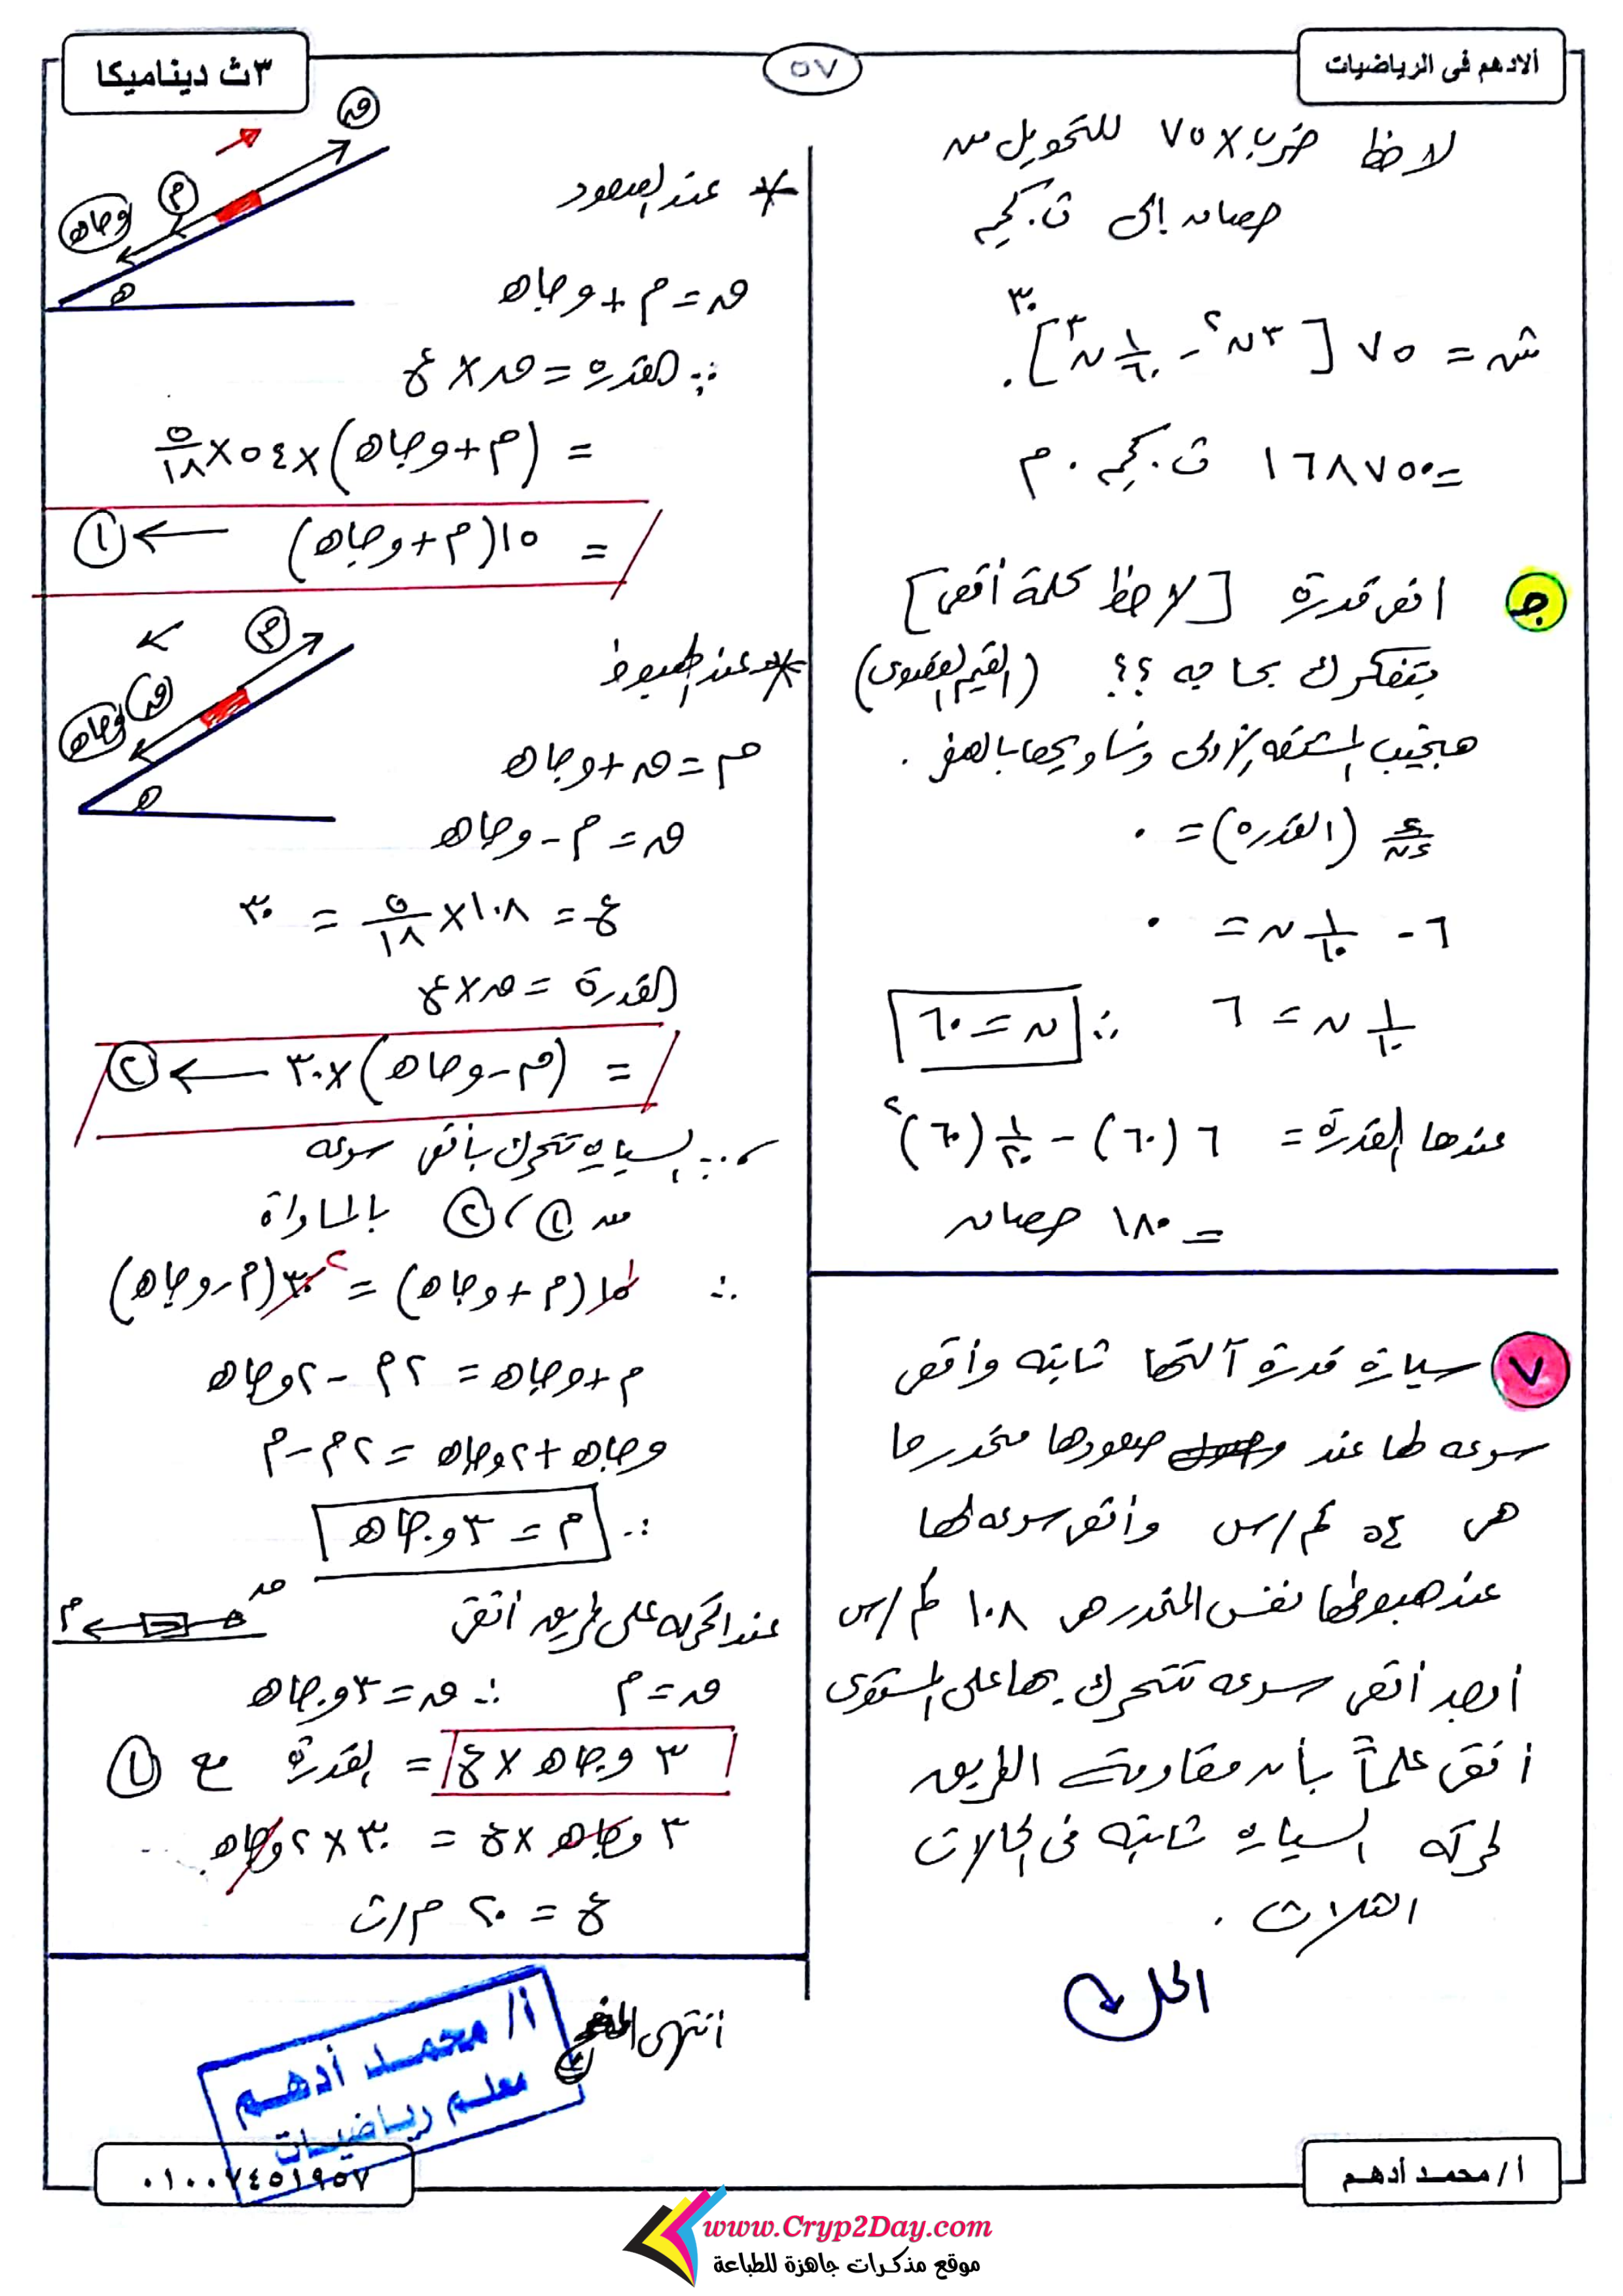 ألادهم فى الرياضيات
٥٧
٣ث ديناميكا
لاحظ ضرب × ٧٥ للتحويل من
حصان إلى ث.كجم
ش = ٧٥ [٣ن² - ١/٦٠ ن³]٣٠ ٠
= ١٦٨٧٥٠ ث.كجم.م
جـ اقصى قدرة [لاحظ كلمة أقصى]
بتفكرك بحاجه ؟؟ (القيم القصوى)
هنجيب المشتقه الأولى ونساويها بالصفر .
ء/ءن (القدره) = ٠
٦ - ١/١٠ ن = ٠
١/١٠ ن = ٦ ∴ ن = ٦٠
عندها القدرة = ٦ (٦٠) - ١/٢٠ (٦٠)²
= ١٨٠ حصان
٧ سيارة قدرة آلتها ثابته وأقصى
سرعه لها عند صعودها منحدر ما
هى ٥٤ كم/س وأقصى سرعه لها
عند هبوطها نفس المنحدر هى ١٠٨ كم/س
أوجد أقصى سرعه تتحرك بها على المستوى
أفقى علماً بأن مقاومة الطريق
لحركه السيارة ثابته فى الحالات
الثلاث .
الحل
* عند الصعود
ق
م
وجاه
ه
ق = م + وجاه
∴ القدرة = ق × ع
= (م + وجاه) × ٥٤ × ٥/١٨
= ١٥ (م + وجاه) ← ١
* عند الهبوط
م
ق
وجاه
ه
م = ق + وجاه
ق = م - وجاه
ع = ١٠٨ × ٥/١٨ = ٣٠
القدرة = ق × ع
= (م - وجاه) × ٣٠ ← ٢
∵ السيارة تتحرك بأقصى سرعه
من ١ ، ٢ بالمساواة
∴ ١٥ (م + وجاه) = ٣٠ ٢ (م - وجاه)
م + وجاه = ٢م - ٢وجاه
وجاه + ٢وجاه = ٢م - م
∴ م = ٣وجاه
عند الحركه على طريق أفقى
ق
م
ق = م ∴ ق = ٣وجاه
٣ وجاه × ع = القدرة مع ١
٣ وجاه × ع = ٣٠ × ٢وجاه
ع = ٢٠ م/ث
أنتهى المنهج
أ/ محمد أدهم
معلم رياضيات
أ / محمد أدهم
٠١٠٠٧٤٥١٩٥٧
www.Cryp2Day.com
موقع مذكرات جاهزة للطباعة